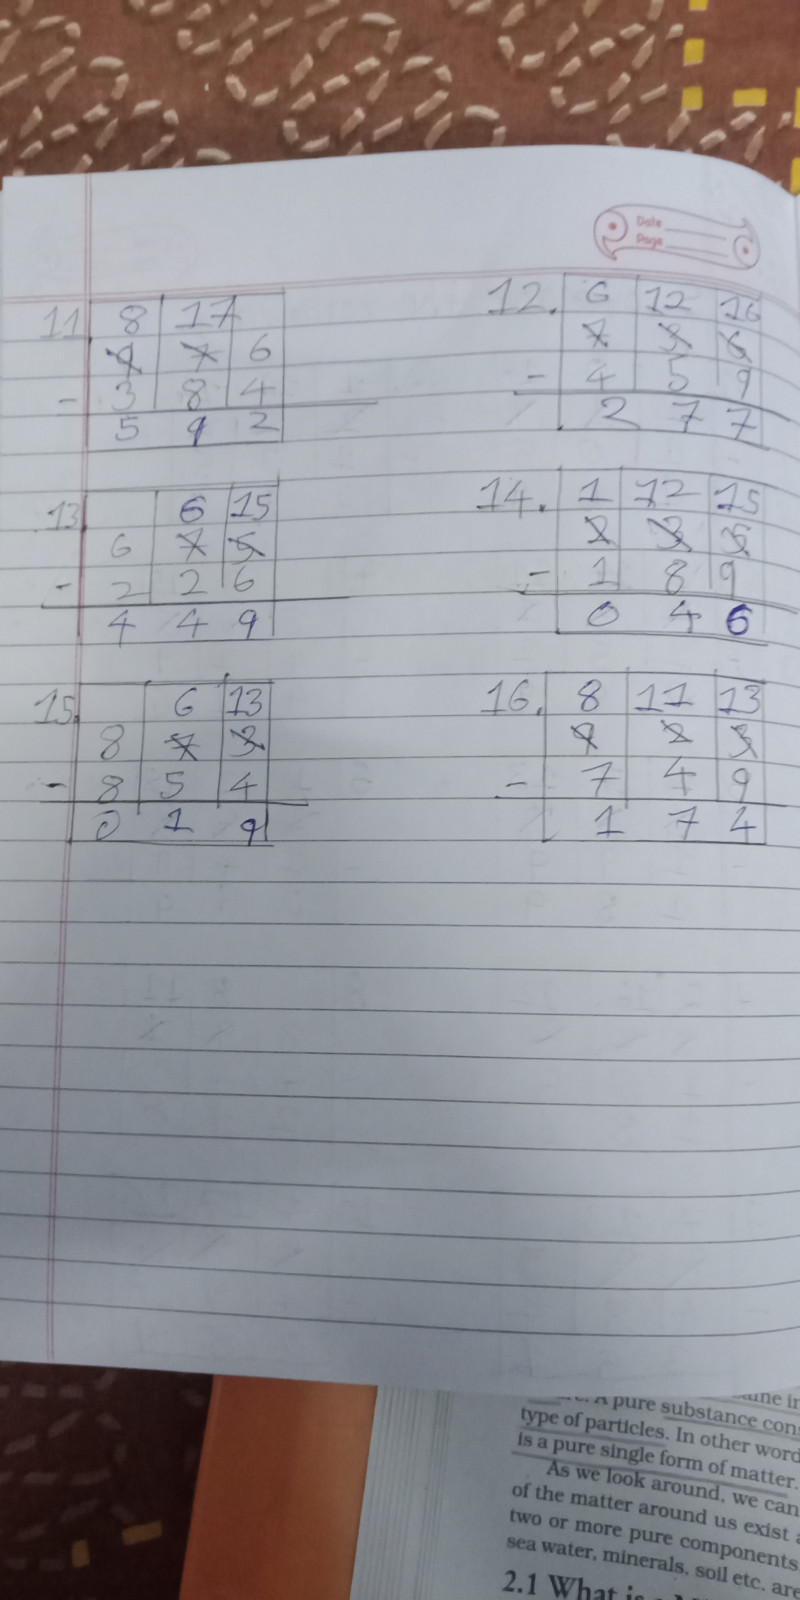 Date
Page
11. 8 17
9 7 6
- 3 8 4
5 9 2
12. 6 12 16
7 3 6
- 4 5 9
2 7 7
13. 6 15
6 7 5
- 2 2 6
4 4 9
14. 1 12 15
2 3 5
- 1 8 9
0 4 6
15. 6 13
8 7 3
- 8 5 4
0 1 9
16. 8 11 13
9 2 3
- 7 4 9
1 7 4
A pure substance con
type of particles. In other word
is a pure single form of matter.
As we look around, we can
of the matter around us exist
two or more pure components
sea water, minerals, soil etc. are
2.1 What is